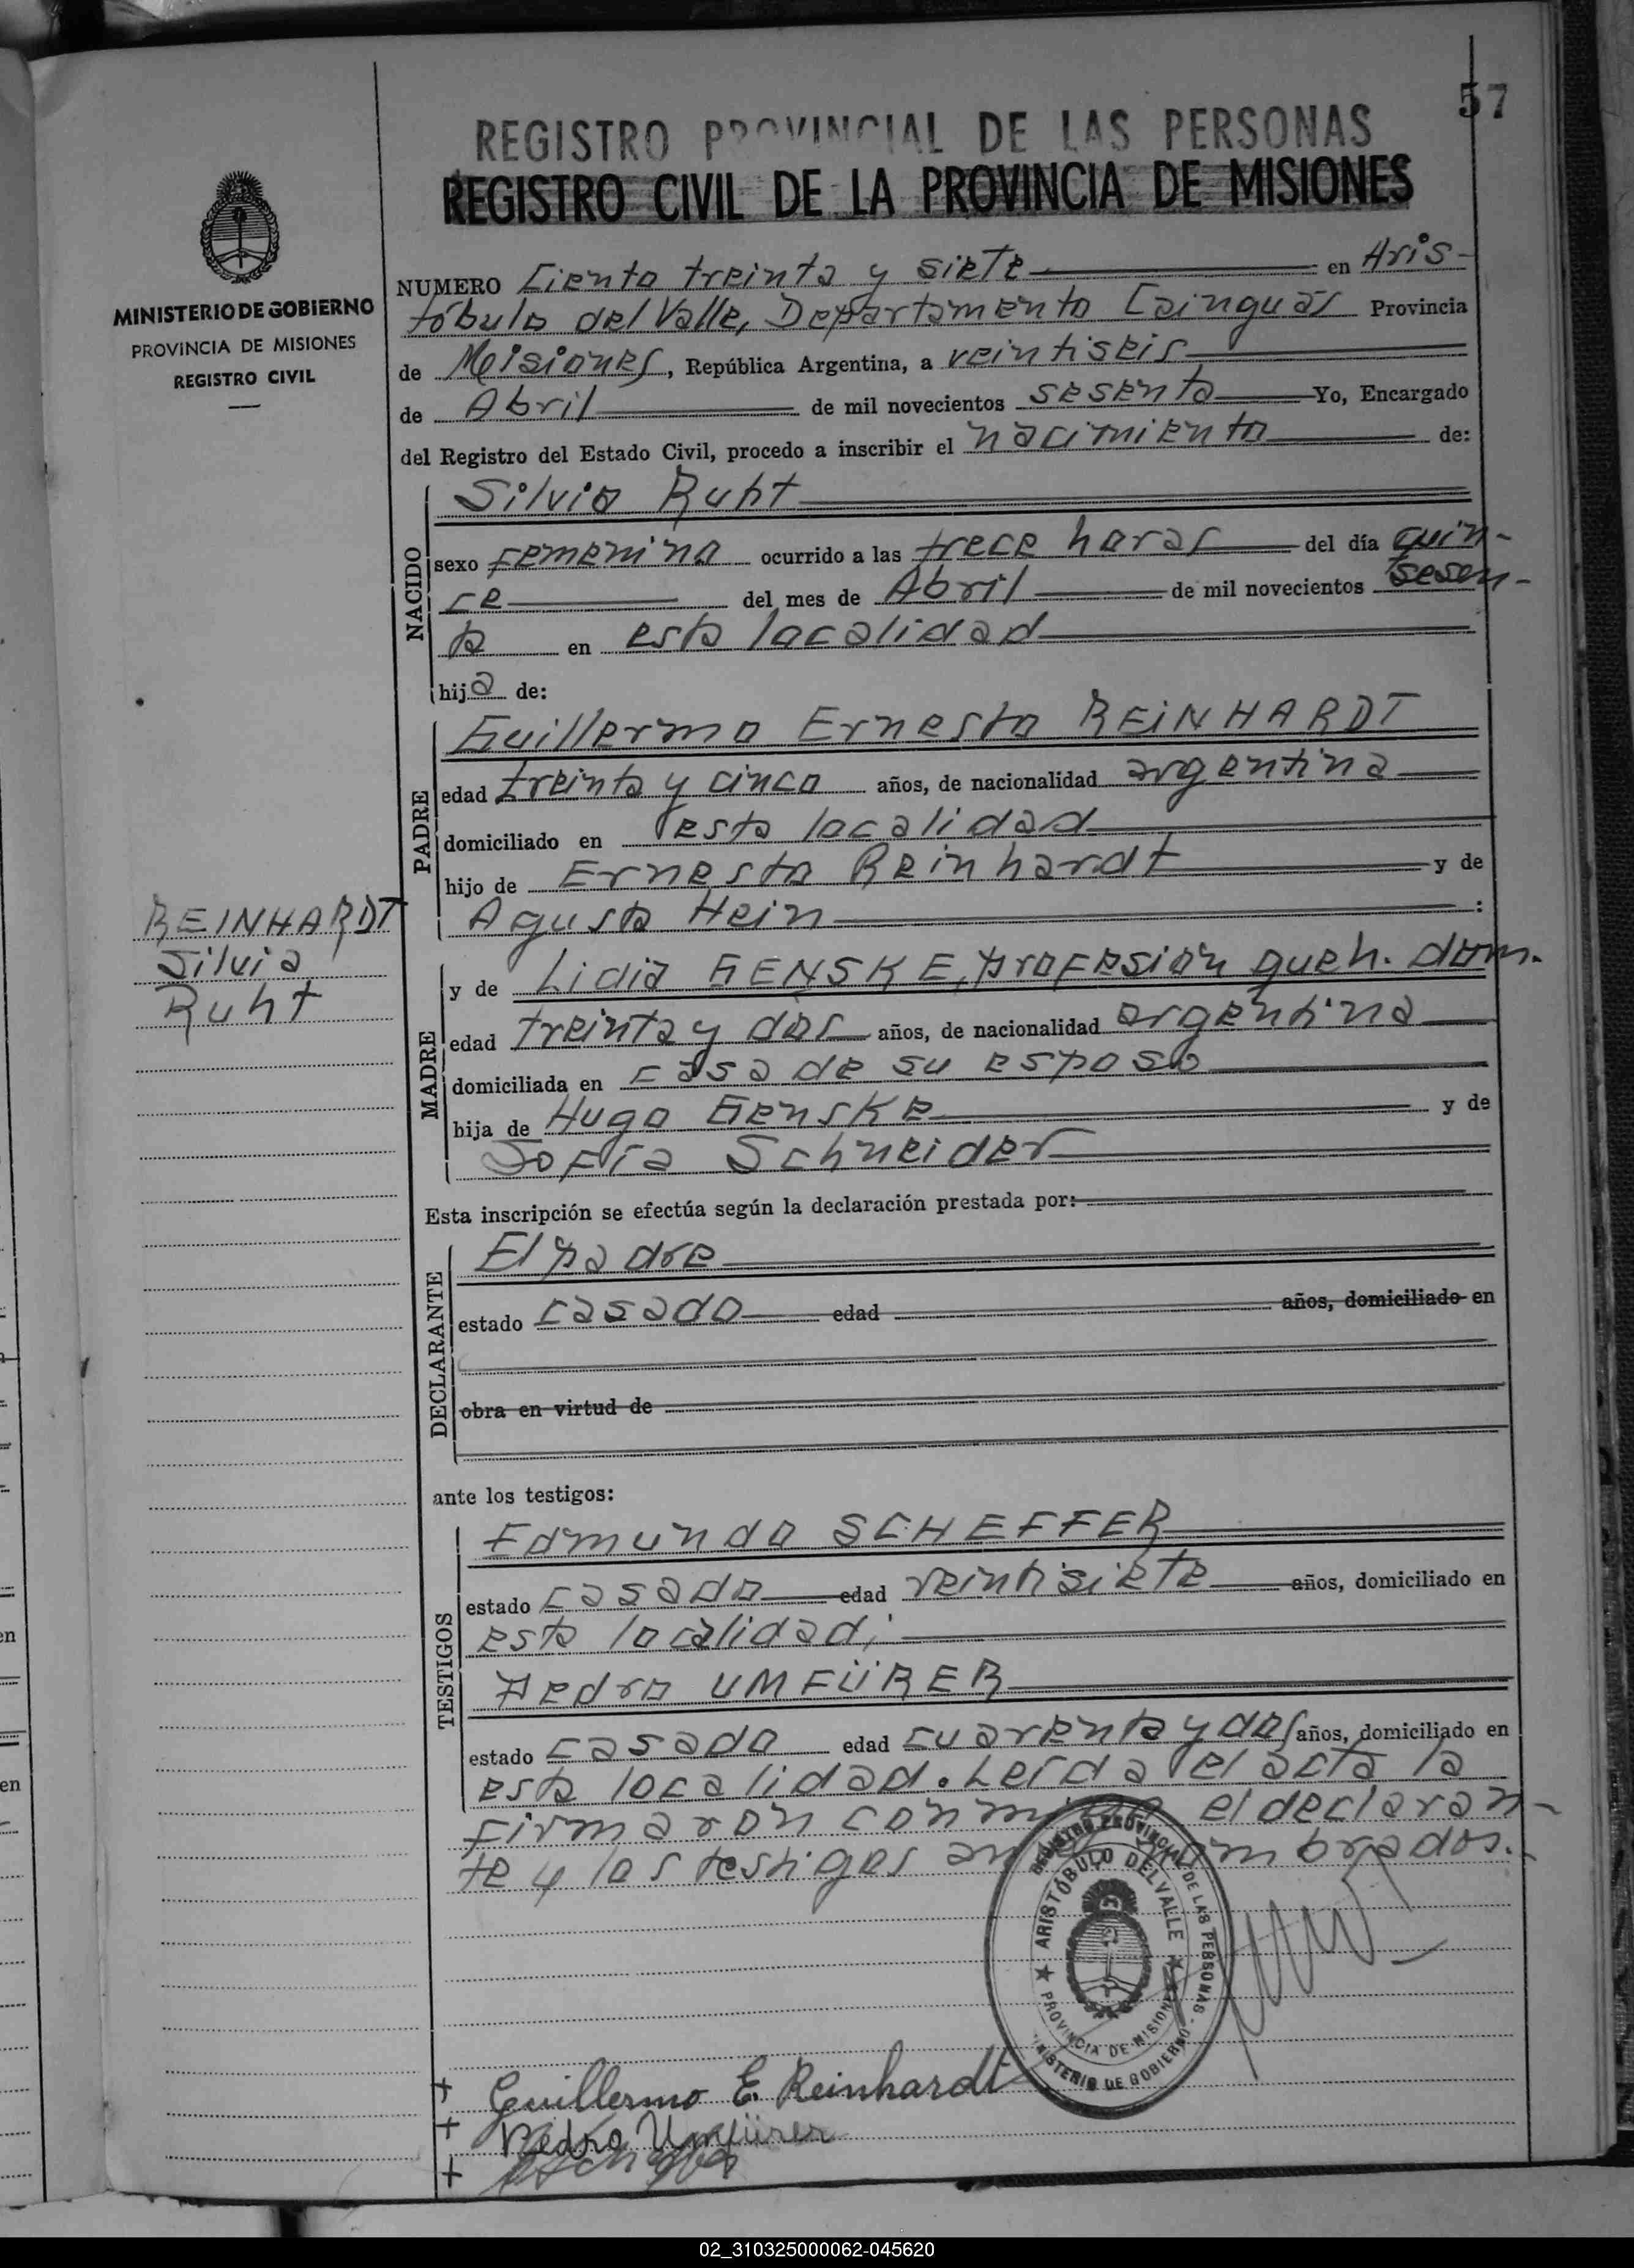 57
REGISTRO PROVINCIAL DE LAS PERSONAS
REGISTRO CIVIL DE LA PROVINCIA DE MISIONES
MINISTERIO DE GOBIERNO
PROVINCIA DE MISIONES
REGISTRO CIVIL
NUMERO Ciento treinta y siete en Aris-
tóbulo del Valle, Departamento Cainguás Provincia
de Misiones, República Argentina, a veintiseis
de Abril de mil novecientos sesenta Yo, Encargado
del Registro del Estado Civil, procedo a inscribir el nacimiento de:
NACIDO
Silvia Ruht
sexo femenina ocurrido a las trece horas del día quin-
ce del mes de Abril de mil novecientos sesen-
ta en esta localidad
hija de:
PADRE
Guillermo Ernesto REINHARDT
edad treinta y cinco años, de nacionalidad argentina
domiciliado en esta localidad
hijo de Ernesto Reinhardt y de
Agusta Hein :
REINHARDT
Silvia
Ruht
MADRE
y de Lidia GENSKE, profesión queh. dom.
edad treinta y dos años, de nacionalidad argentina
domiciliada en casa de su esposo
hija de Hugo Genske y de
Sofía Schneider
Esta inscripción se efectúa según la declaración prestada por:
DECLARANTE
El padre
estado casado edad años, domiciliado en
obra en virtud de
ante los testigos:
TESTIGOS
Edmundo SCHEFFER
estado casado edad veintisiete años, domiciliado en
esta localidad;
Pedro UMFÜRER
estado casado edad cuarenta y dos años, domiciliado en
esta localidad. Leída el acta la
firmaron conmigo el declaran-
te y los testigos antes nombrados.
REGISTRO PROVINCIAL DE LAS PERSONAS - MINISTERIO DE GOBIERNO
ARISTÓBULO DEL VALLE ★ PROVINCIA DE MISIONES ★
+ Guillermo E. Reinhardt
+ Pedro Umfürer
+
02_310325000062-045620